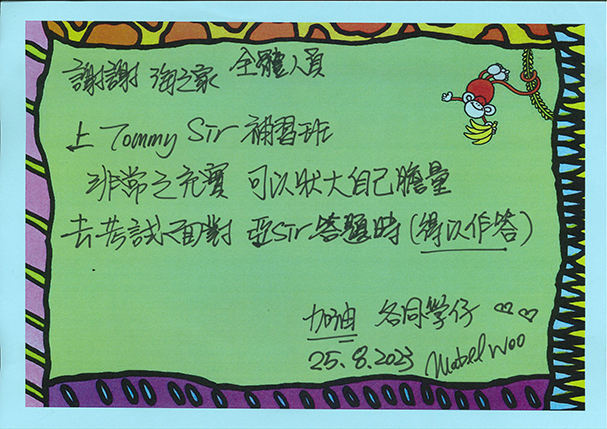 謝謝 海之家 全體人員
上 Tommy Sir 補習班
非常之充實 可以狀大自己膽量
去考試面對 亞Sir 答題時 (得以作答)
加油 各同學仔 ♡♡
25.8.2023 Mabel Woo